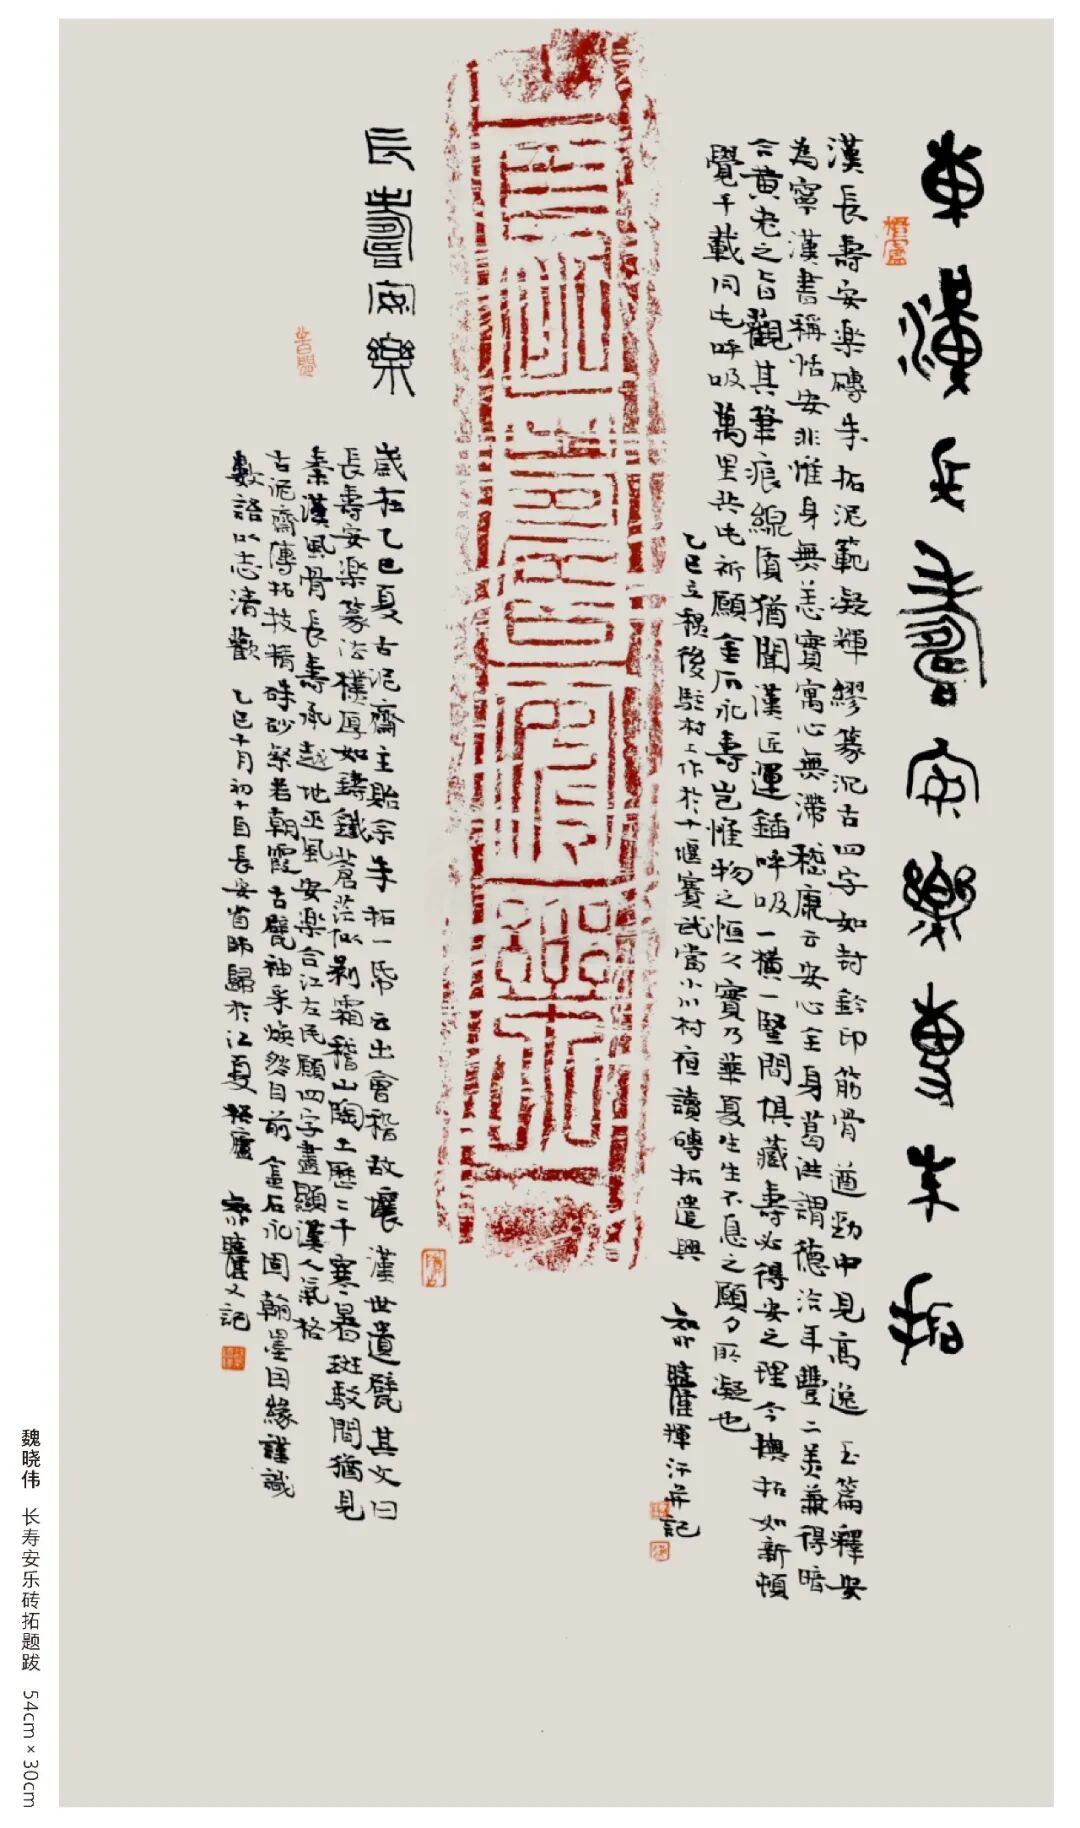 東漢長壽安樂專朱拓
漢長壽安樂磚朱拓泥範凝輝繆篆沉古四字如封鈐印筋骨遒勁中見高逸玉篇釋安
為寧漢書稱恬安非惟身無恙實寓心無滯嵇康云安心全身葛洪謂德洽年豐二美兼得暗
合黃老之旨觀其筆痕線質猶聞漢匠運鍤呼吸一橫一豎間俱藏壽必得安之理今撫拓如新頓
覺千載同此呼吸萬里共此祈願金石永壽豈惟物之恒久實乃華夏生生不息之願力所凝也
乙巳立秋後駐村工作於十堰賽武當小川村夜讀磚拓遣興
曉偉揮汗并記
長壽安樂
長壽安樂
歲在乙巳夏古泥齋主貽余朱拓一紙云出會稽故壤漢世遺甓其文曰
長壽安樂篆法樸厚如鑄鐵蒼茫似剝霜稽山陶土歷二千寒暑斑駁間猶見
秦漢風骨長壽承越地巫風安樂合江左民願四字盡顯漢人氣格
古泥齋傳拓技精硃砂粲若朝霞古甓神采煥然目前金石永固翰墨因緣謹識
數語以志清歡乙巳十月初十自長安省師歸於江夏
曉偉又記
魏晓伟 长寿安乐砖拓题跋 54cm×30cm